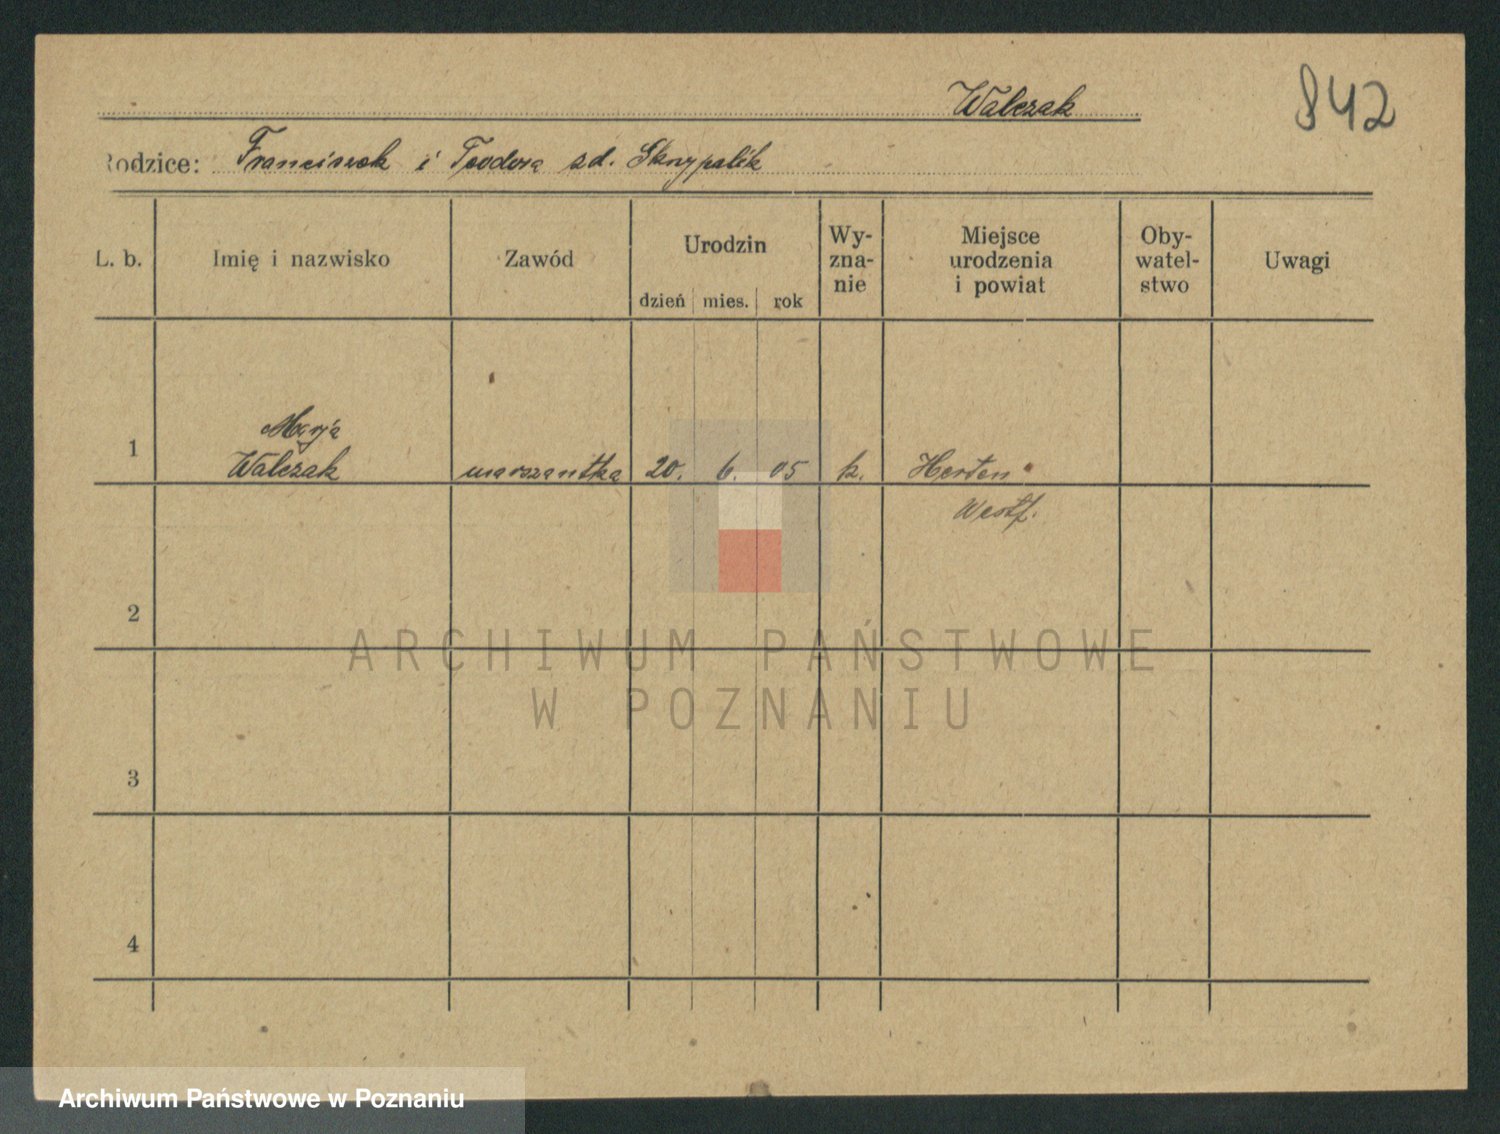 Walczak
842
Rodzice: Franciszek i Teodora zd. Skrzypalik
L. b.
Imię i nazwisko
Zawód
Urodzin
dzień mies. rok
Wy-
zna-
nie
Miejsce
urodzenia
i powiat
Oby-
watel-
stwo
Uwagi
1
Marja
Walczak
marszantka
20. 6. 05
k.
Herten
Westf.
2
3
4
ARCHIWUM PAŃSTWOWE
W POZNANIU
Archiwum Państwowe w Poznaniu